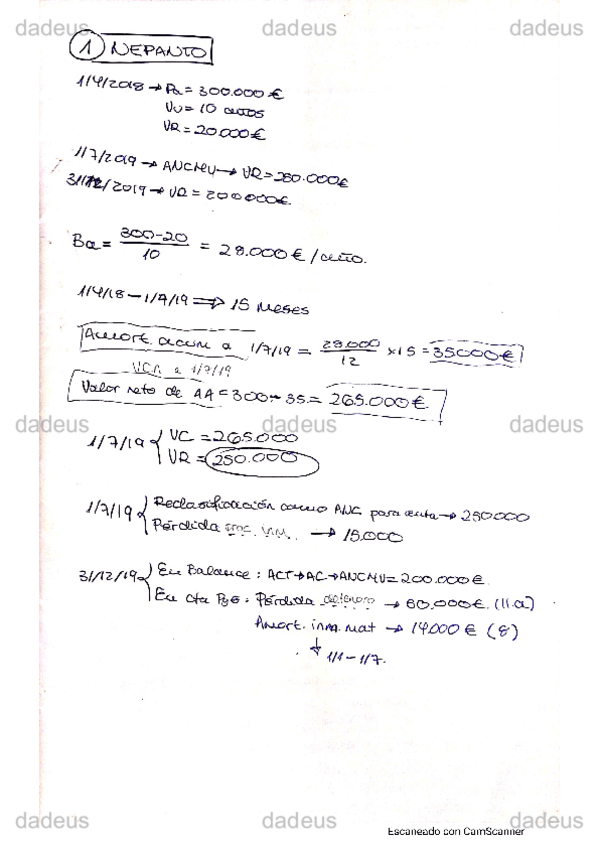 dadeus dadeus dadeus
① NEPANTO
1/4/2018 → Pa = 300.000 €
VU = 10 años
VR = 20.000 €
1/7/2019 → ANCMV → VR = 250.000 €
31/12/2019 → VR = 200.000 €.
Ba = 300-20 / 10 = 28.000 € / año.
1/4/18 - 1/7/19 ⇒ 15 Meses
Amort. acum a 1/7/19 = 28.000 / 12 x 15 = 35000 €
VCN a 1/7/19
Valor neto de AA = 300 - 35 = 265.000 €
dadeus dadeus dadeus
1/7/19 { VC = 265.000
VR = 250.000
1/7/19 { Reclasificación como ANC para venta → 250000
Pérdida proc. VM. → 15.000
31/12/19 { En Balance: ACT → AC → ANCMV = 200.000 €.
En Cta PyG: Pérdida deterioro → 60.000 €. (11.a)
Amort. inm. mat → 14.000 € (8)
↓ 1/1 - 1/7.
dadeus dadeus dadeus
Escaneado con CamScanner